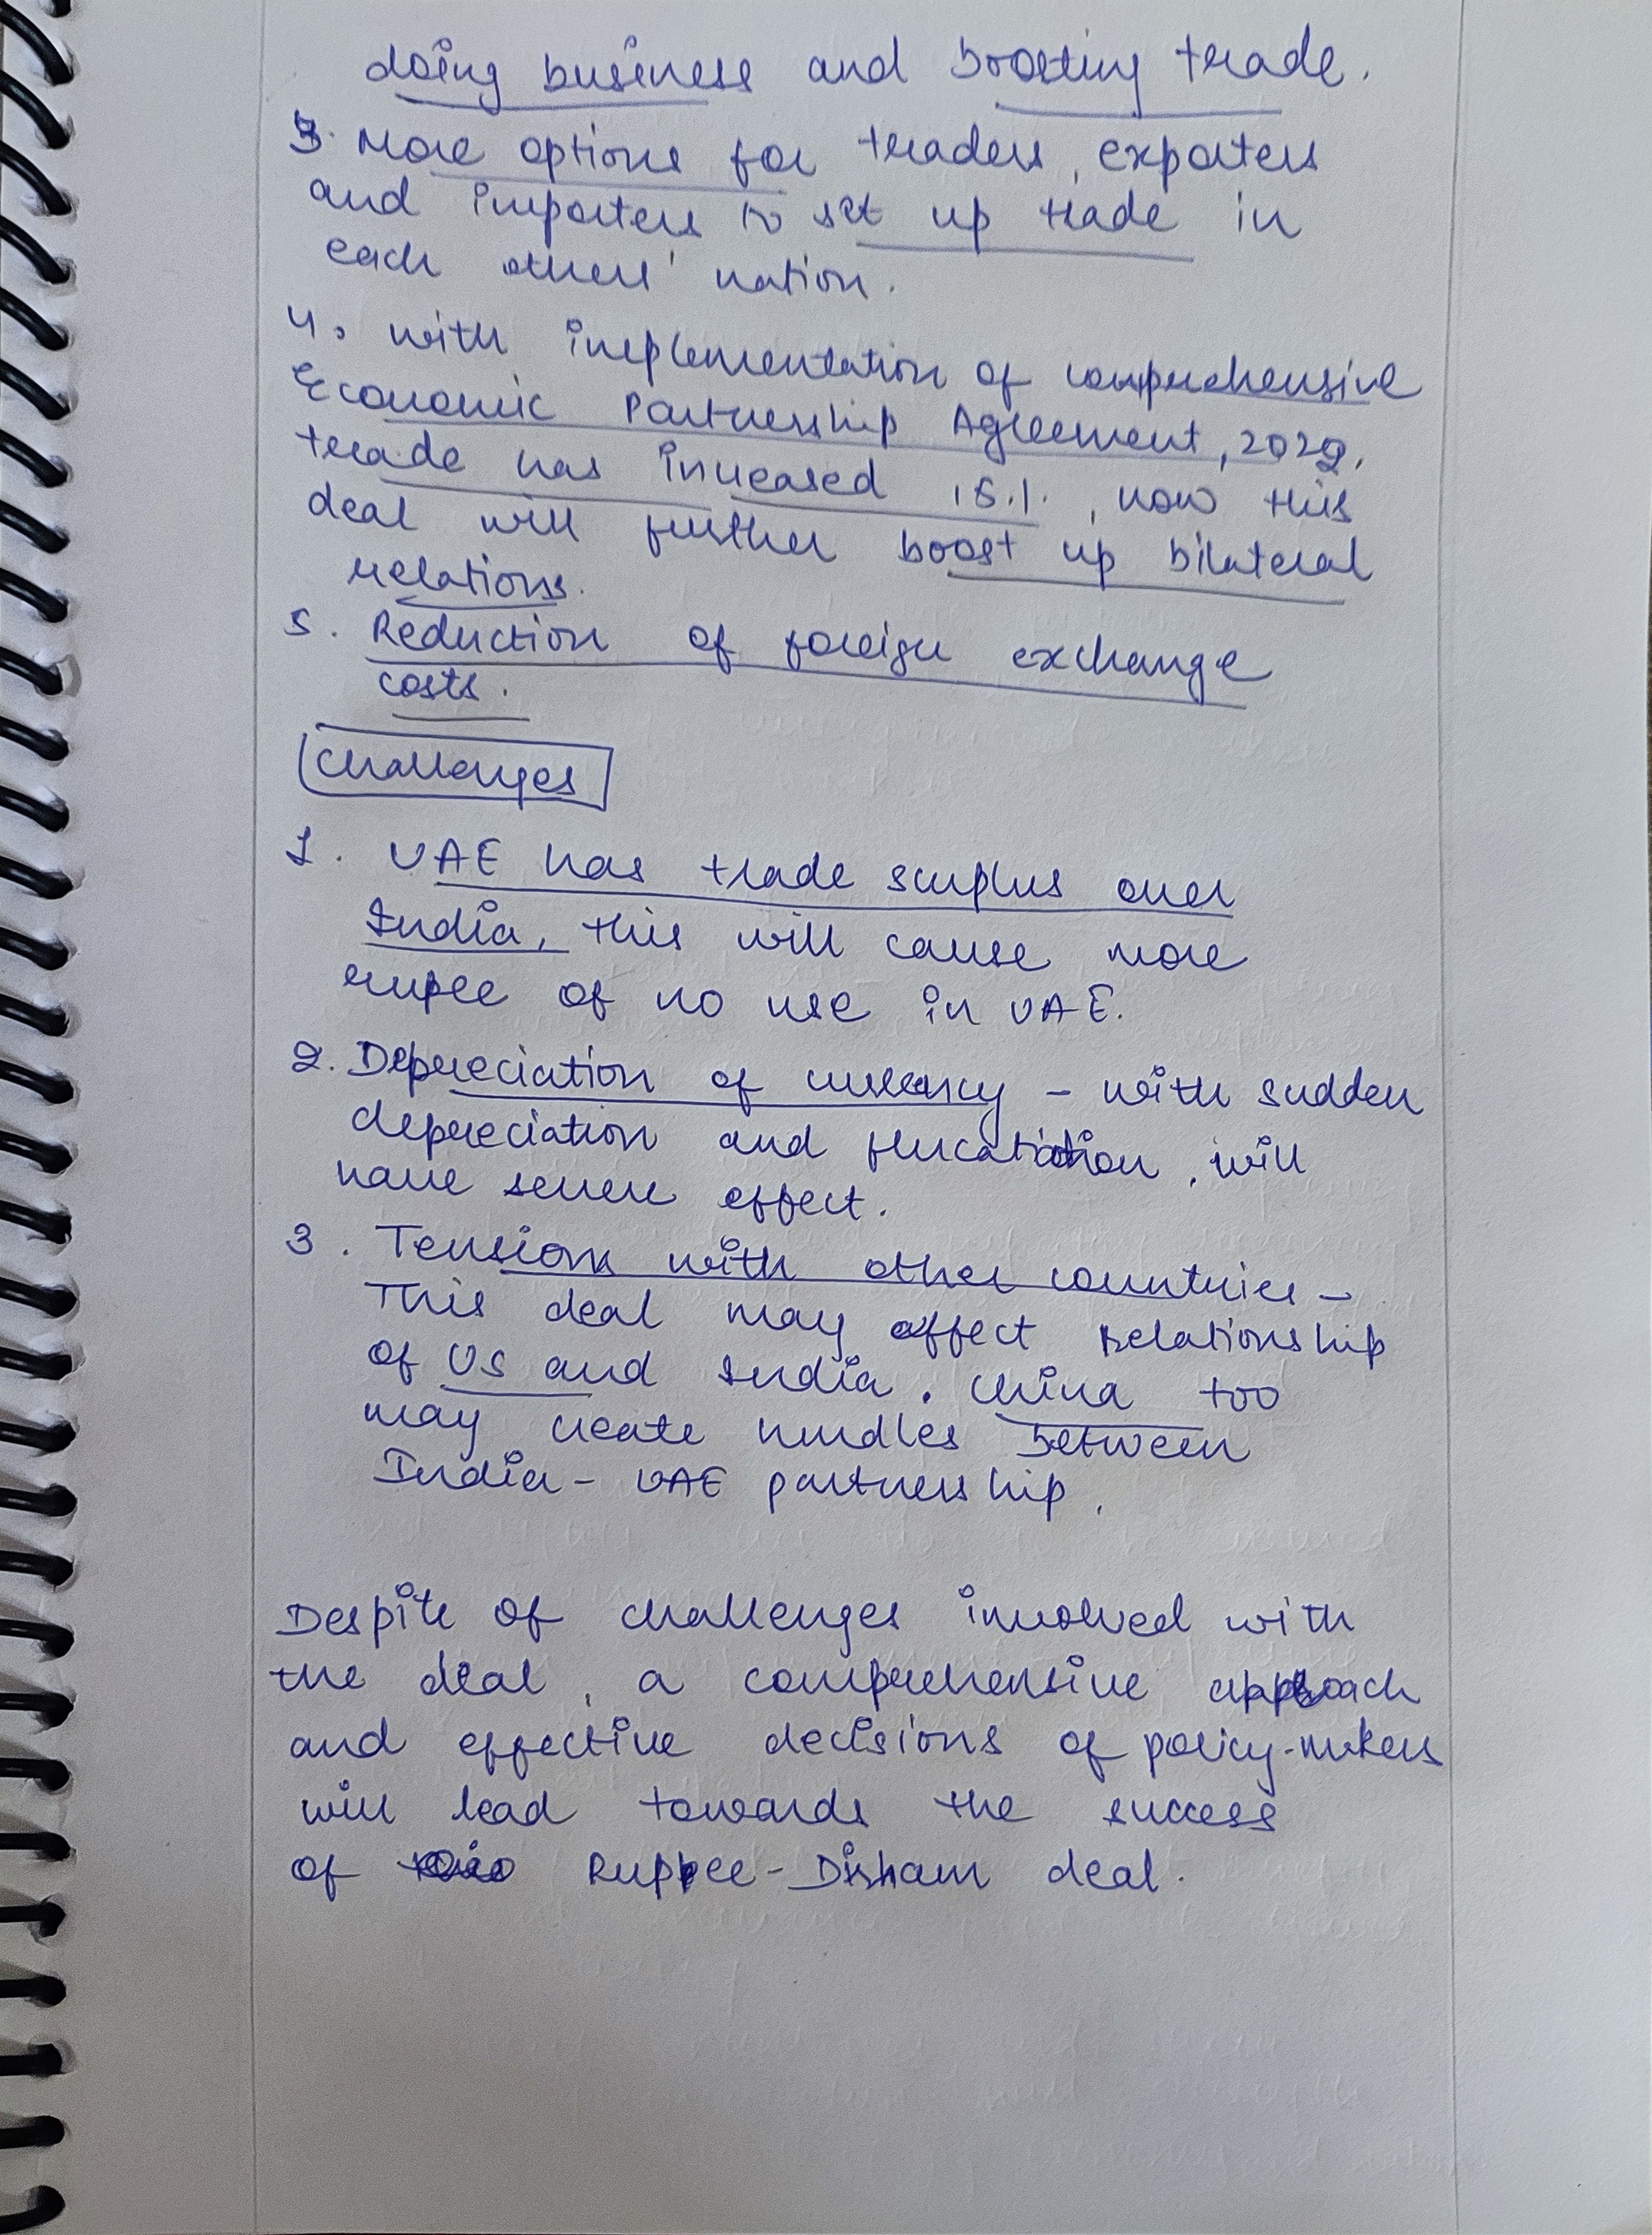 doing business and boosting trade.
3. More options for traders, exporters
and importers to set up trade in
each others' nation.
4. with implementation of comprehensive
Economic Partnership Agreement, 2022,
trade has increased 15%, now this
deal will further boost up bilateral
relations.
5. Reduction of foreign exchange
costs.
Challenges
1. UAE has trade surplus over
India, this will cause more
rupee of no use in UAE.
2. Depreciation of currency - with sudden
depreciation and , will
have severe effect.
3. Tensions with other countries -
This deal may affect relationship
of US and India. China too
may create hurdles between
India - UAE partnership.
Despite of challenges involved with
the deal, a comprehensive approach
and effective decisions of policy-makers
will lead towards the success
of Ruppee - Dirham deal.